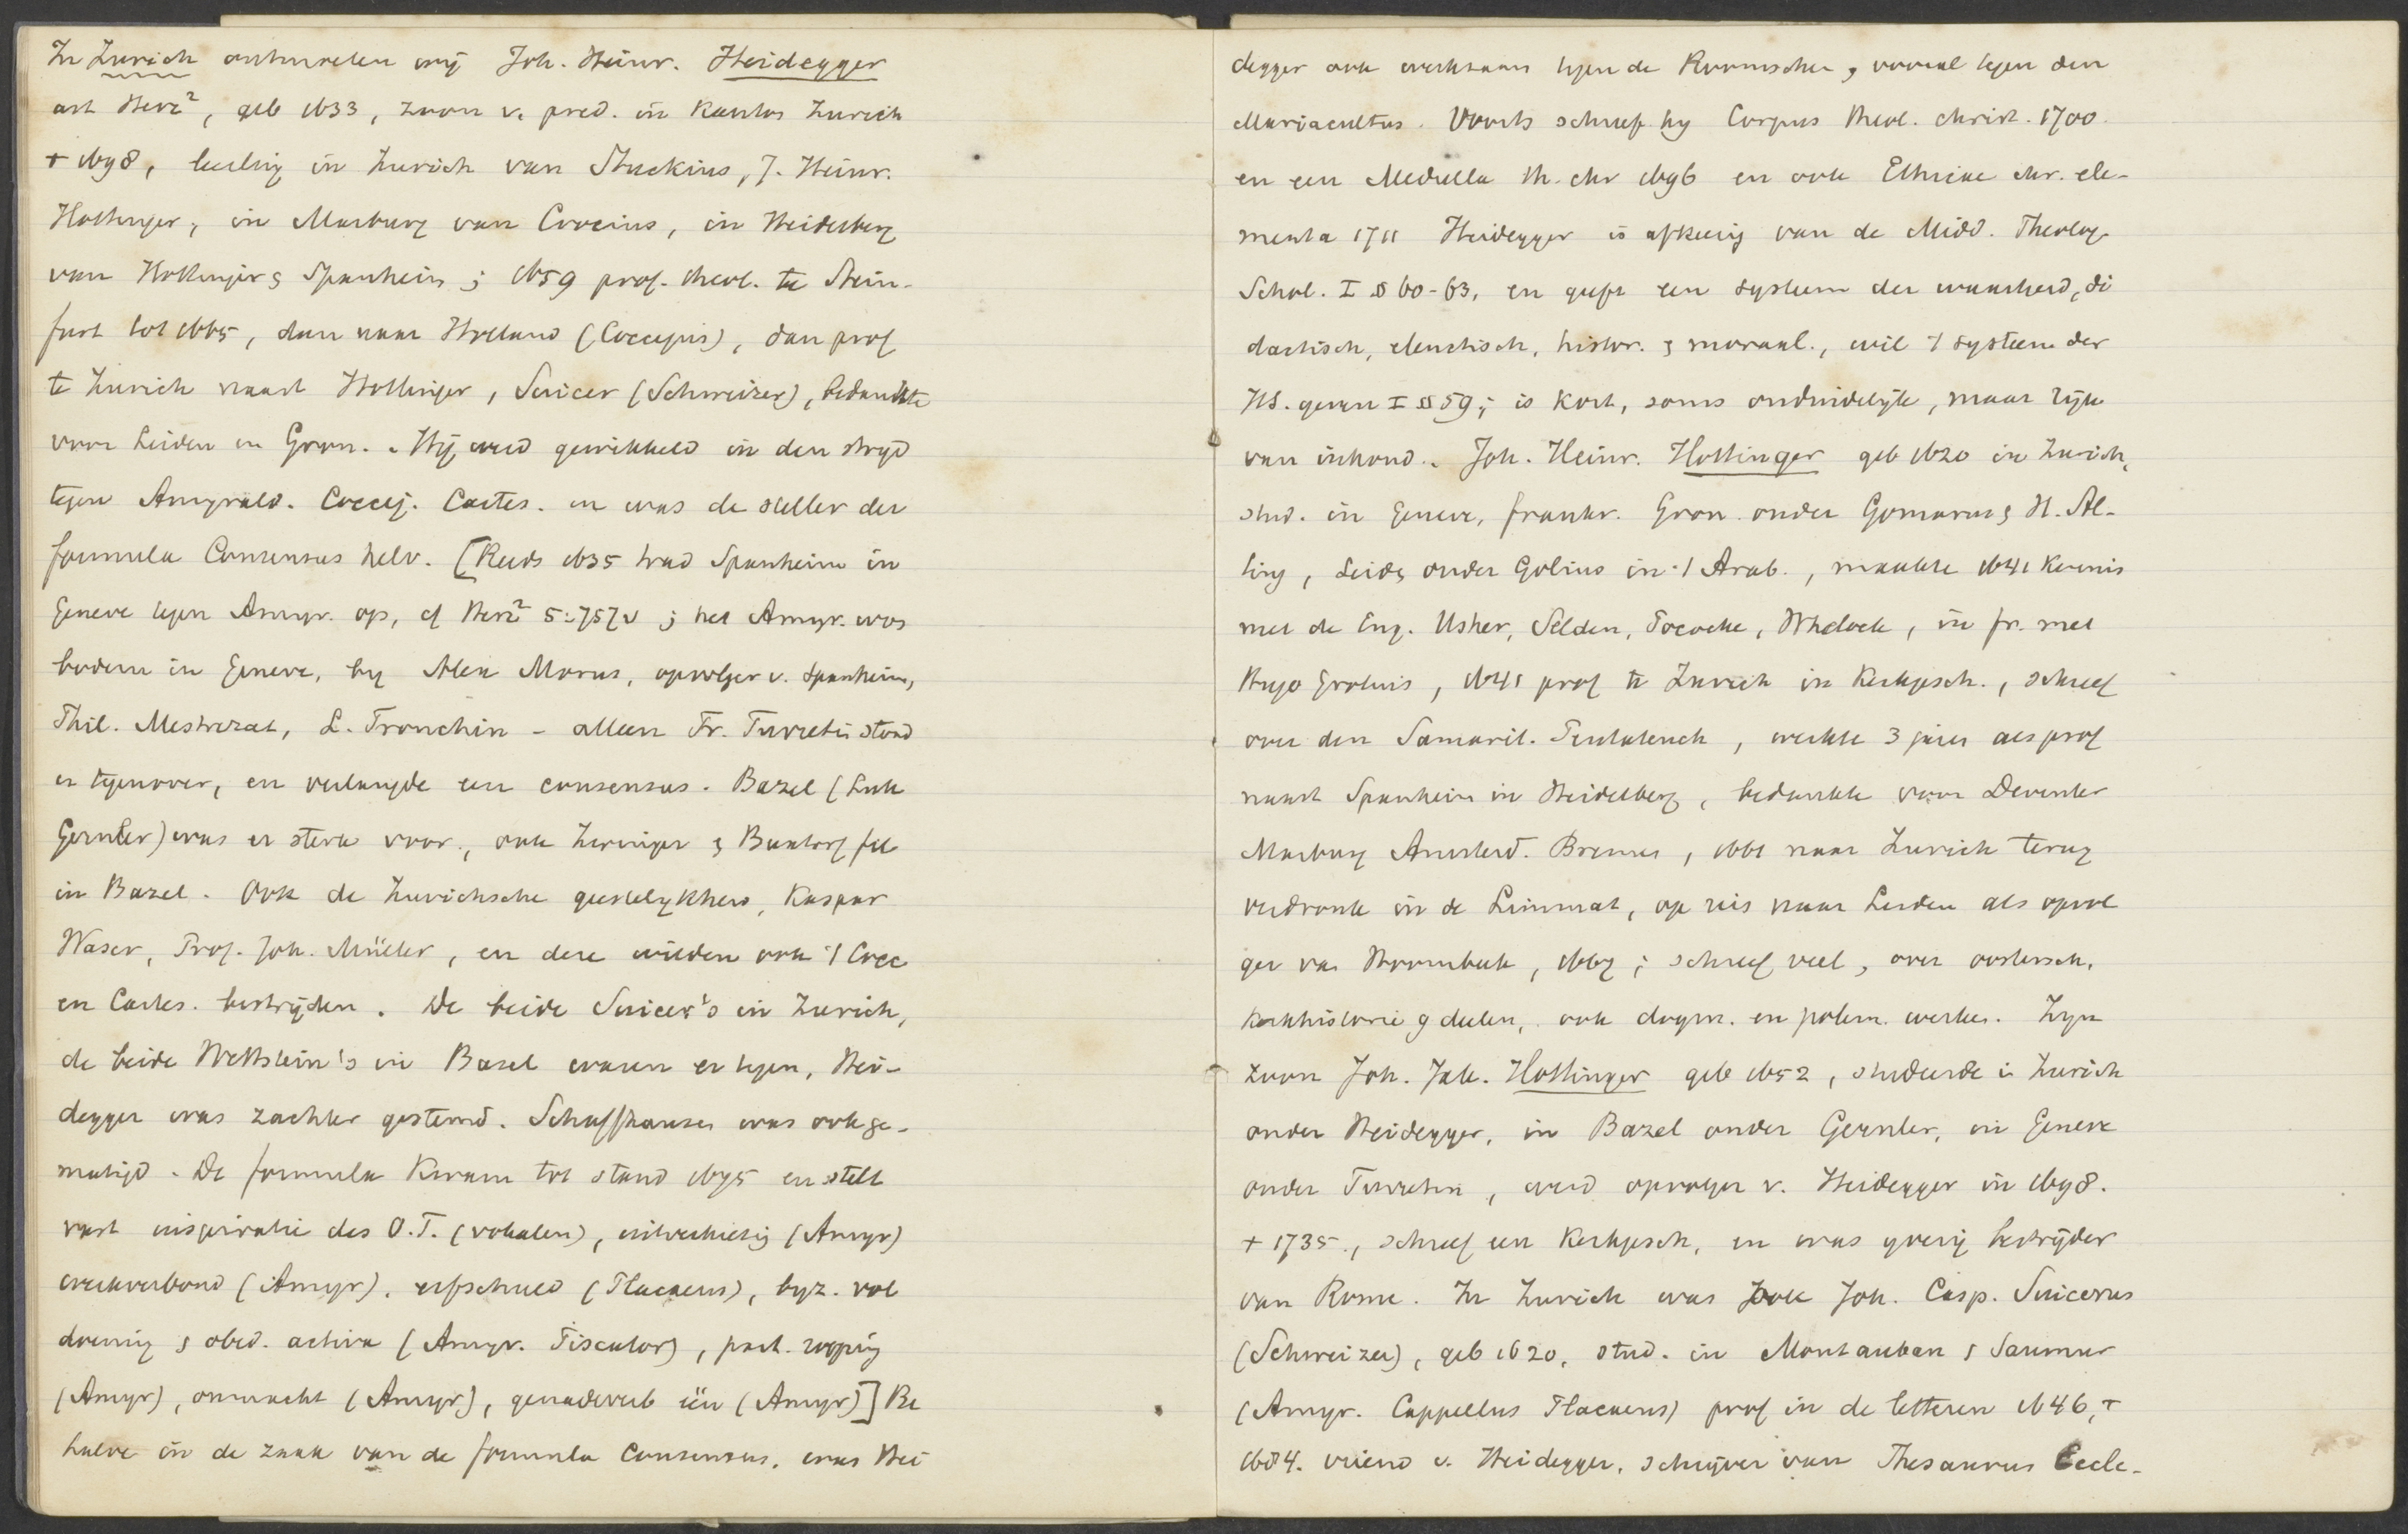 In Zurich ontmoeten wij Joh. Heinr. Heidegger
art Herz², geb 1633, zoon v. pred. in Kanton Zurich
+ 1698, leerling in Zurich van Stuckius, J. Heinr.
Hottinger, in Marburg van Crocius, in Heidelberg
van Hottinger & Spanheim; 1659 prof. theol. te Stein-
furt tot 1665, dan naar Holland (Coccejus), dan prof
te Zurich naast Hottinger, Suicer (Schweizer), bedankte
voor Leiden en Gron. Hij werd gewikkeld in den strijd
tegen Amyrald. Coccej. Cartes. en was de steller der
formula Consensus helv. [Reeds 1635 trad Spanheim in
Geneve tegen Amyr. op, cf Herz² 5:757v; het Amyr. was
bodem in Geneve, by Alex Morus, opvolger v. Spanheim,
Phil. Mestrezat, L. Tronchin - alleen Fr. Turretin stond
er tegenover, en verlangde een consensus. Bazel (Luk
Gernler) was er sterk voor, ook Zwinger & Buxtorf fil
in Bazel. Ook de Zurichsche geestelykheid, Kaspar
Waser, Prof. Joh. Müller, en deze wilden ook 't Cocc
en Cartes. bestrijden. De beide Suicer's in Zurich,
de beide Wettstein's in Bazel waren er tegen, Hei-
degger was zachter gestemd. Schaffhausen was ook ge-
matigd. De formula kwam tot stand 1675 en stelt
vast inspiratie des O.T. (vokalen), uitverkiezing (Amyr)
werkverbond (Amyr), erfschuld (Placaeus), byz. vol
doening & obed. activa (Amyr. Piscator), part. roeping
(Amyr), onmacht (Amyr), genadeverb één (Amyr)] Be
halve in de zaak van de formula Consensus, was Hei
degger ook werkzaam tegen de Roomschen, vooral tegen den
Mariacultus. Voorts schreef hy Corpus theol. christ. 1700.
en een Medulla th. chr 1696 en ook Ethicae chr. ele-
menta 1711 Heidegger is afkeerig van de Midd. Theolog.
Schol. I § 60-63, en geeft een systeem der waarheid, di
dactisch, elenctisch, histor. & moraal., wil 't systeem der
HS. geven I § 59; is kort, soms onduidelijk, maar rijk
van inhoud. Joh. Heinr. Hottinger geb 1620 in Zurich,
stud. in Geneve, frankr. Gron. onder Gomarus & H. Al-
ting, Leide, onder Golius in 't Arab., maakte 1641 kennis
met de Eng. Usher, Selden, Pococke, Whelock, in fr. met
Hugo Grotius, 1641 prof te Zurich in Kerkgesch., schreef
over den Samarit. Pentateuch, werkte 3 jaren als prof
naast Spanheim in Heidelberg, bedankte voor Deventer
Marburg Amsterd. Bremen, 1661 naar Zurich terug
verdronk in de Limmat, op reis naar Leiden als opvol
ger van Hoornbeek, 1667; schreef veel, over oostersch,
kerkhistorie 9 deelen, ook dogm. en polem. werken. Zyn
zoon Joh. Jak. Hottinger geb 1652, studeerde in Zurich
onder Heidegger, in Bazel onder Gernler, in Geneve
onder Turretin, werd opvolger v. Heidegger in 1698.
+ 1735, schreef een Kerkgesch, en was yverig bestrijder
van Rome. In Zurich was ook Joh. Casp. Suicerus
(Schweizer), geb 1620, stud. in Montauban & Saumur
(Amyr. Cappellus Placaeus) prof in de letteren 1646, +
1684. vriend v. Heidegger, schrijver van Thesaurus Eccle-